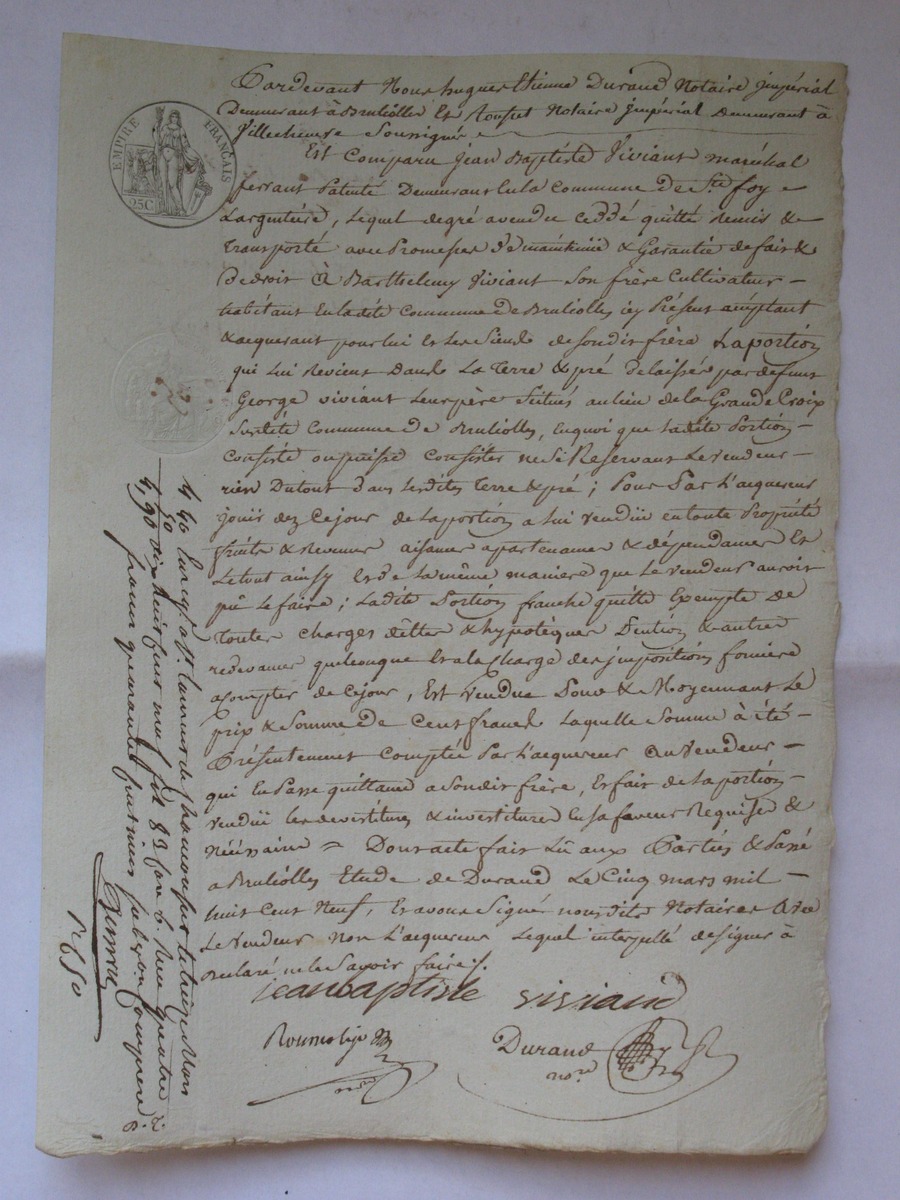 EMPIRE FRANÇAIS
25C
Pardevant Nous hugues Etienne Durand Notaire jmpérial
Demeurant à Bruliolles Et Notaire jmpérial demeurant à
Villechenève Soussignés
Est Comparu jean Baptiste Viviant maréchal
ferrant Patenté Demeurant En la Commune De Ste foy
Largentière, Lequel de gré a vendu ceddé quitté remis &
transporté avec Promesse de maintenüe & Garantie de fait &
De droit à Barthelemy Viviant Son frère Cultivateur
habitant En la dite Commune De Brulliolles icy Présent acceptant
& acquerant pour lui Et les Siens de son dit frère La portion
qui Lui Revient Dans La Terre & pré delaissés par defunt
George viviant Leur père Situés au lieu de la Grande Croix
Susdite Commune De Brulliolles, En quoi que La dite Portion
Consiste ou puisse Consister ne Se Réservant Le vendeur
rien Du tout dans Les dites Terre & pré ; Pour Par L'acquereur
jouir dez Ce jour de La portion a lui vendüe en toute Propriété
fruits & Revenus aisances apartenances & dépendances Et
Le tout ainsy Et de La même maniere que Le vendeur auroit
pû Le faire ; La dite Portion franche quitte Exempte de
toutes charges dettes & hypotèques Pention & autres
redevances quelconque Et a la Charge des jmpositions foncière
a Compter de Ce jour, Est vendue Pour & Moyennant Le
prix & Somme De Cent francs Laquelle Somme à été
Présentement Comptée Par L'acquereur au vendeur
qui En Passe quittance a Son dit frère, Et fait de La portion
vendüe les devestitures & investitures En sa faveur Requises &
Nécessaire = Dont acte fait Lû aux Parties & Passé
a Brulliolles Etude de Durand Le Cinq mars mil
huit Cent Neuf, Et avons Signé nous dits Notaires Avec
Le vendeur Non L'acquereur Lequel interpellé de signer à
declaré ne le Savoir faire ./.
jean baptiste viviand
Durand
nore
4 40 Enreg. a St. Laurent de chamousset le treize Mars
40 dix huit cent neuf fol 83 Reçu quatre
4,90 francs quarante centimes